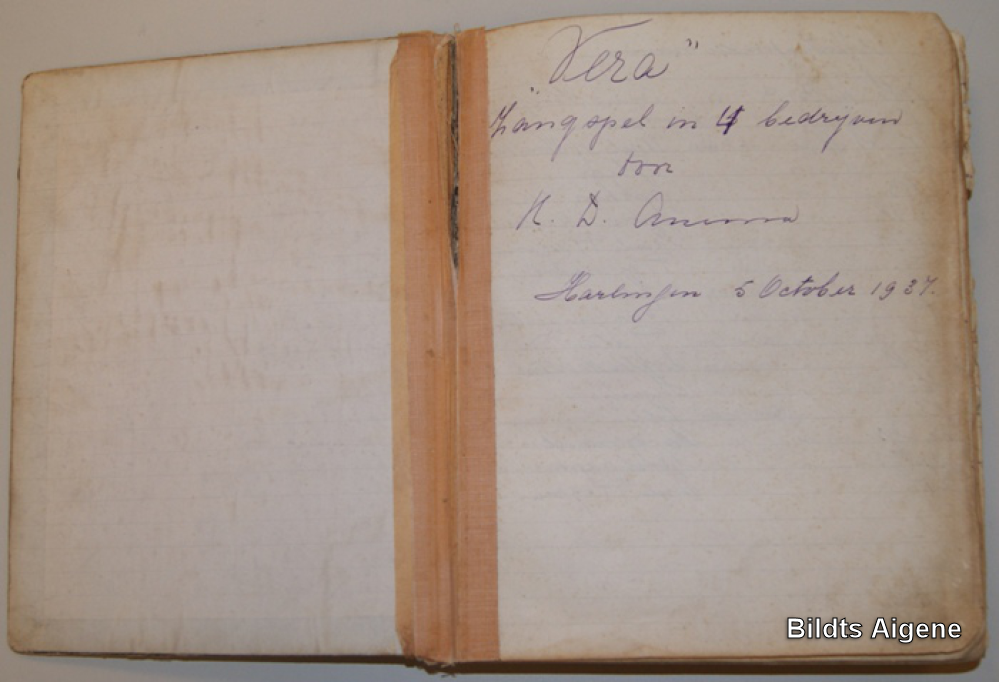 "Vera"
Zangspel in 4 bedrijven
door
K. D. Anema
Harlingen 5 October 1937.
Bildts Aigene